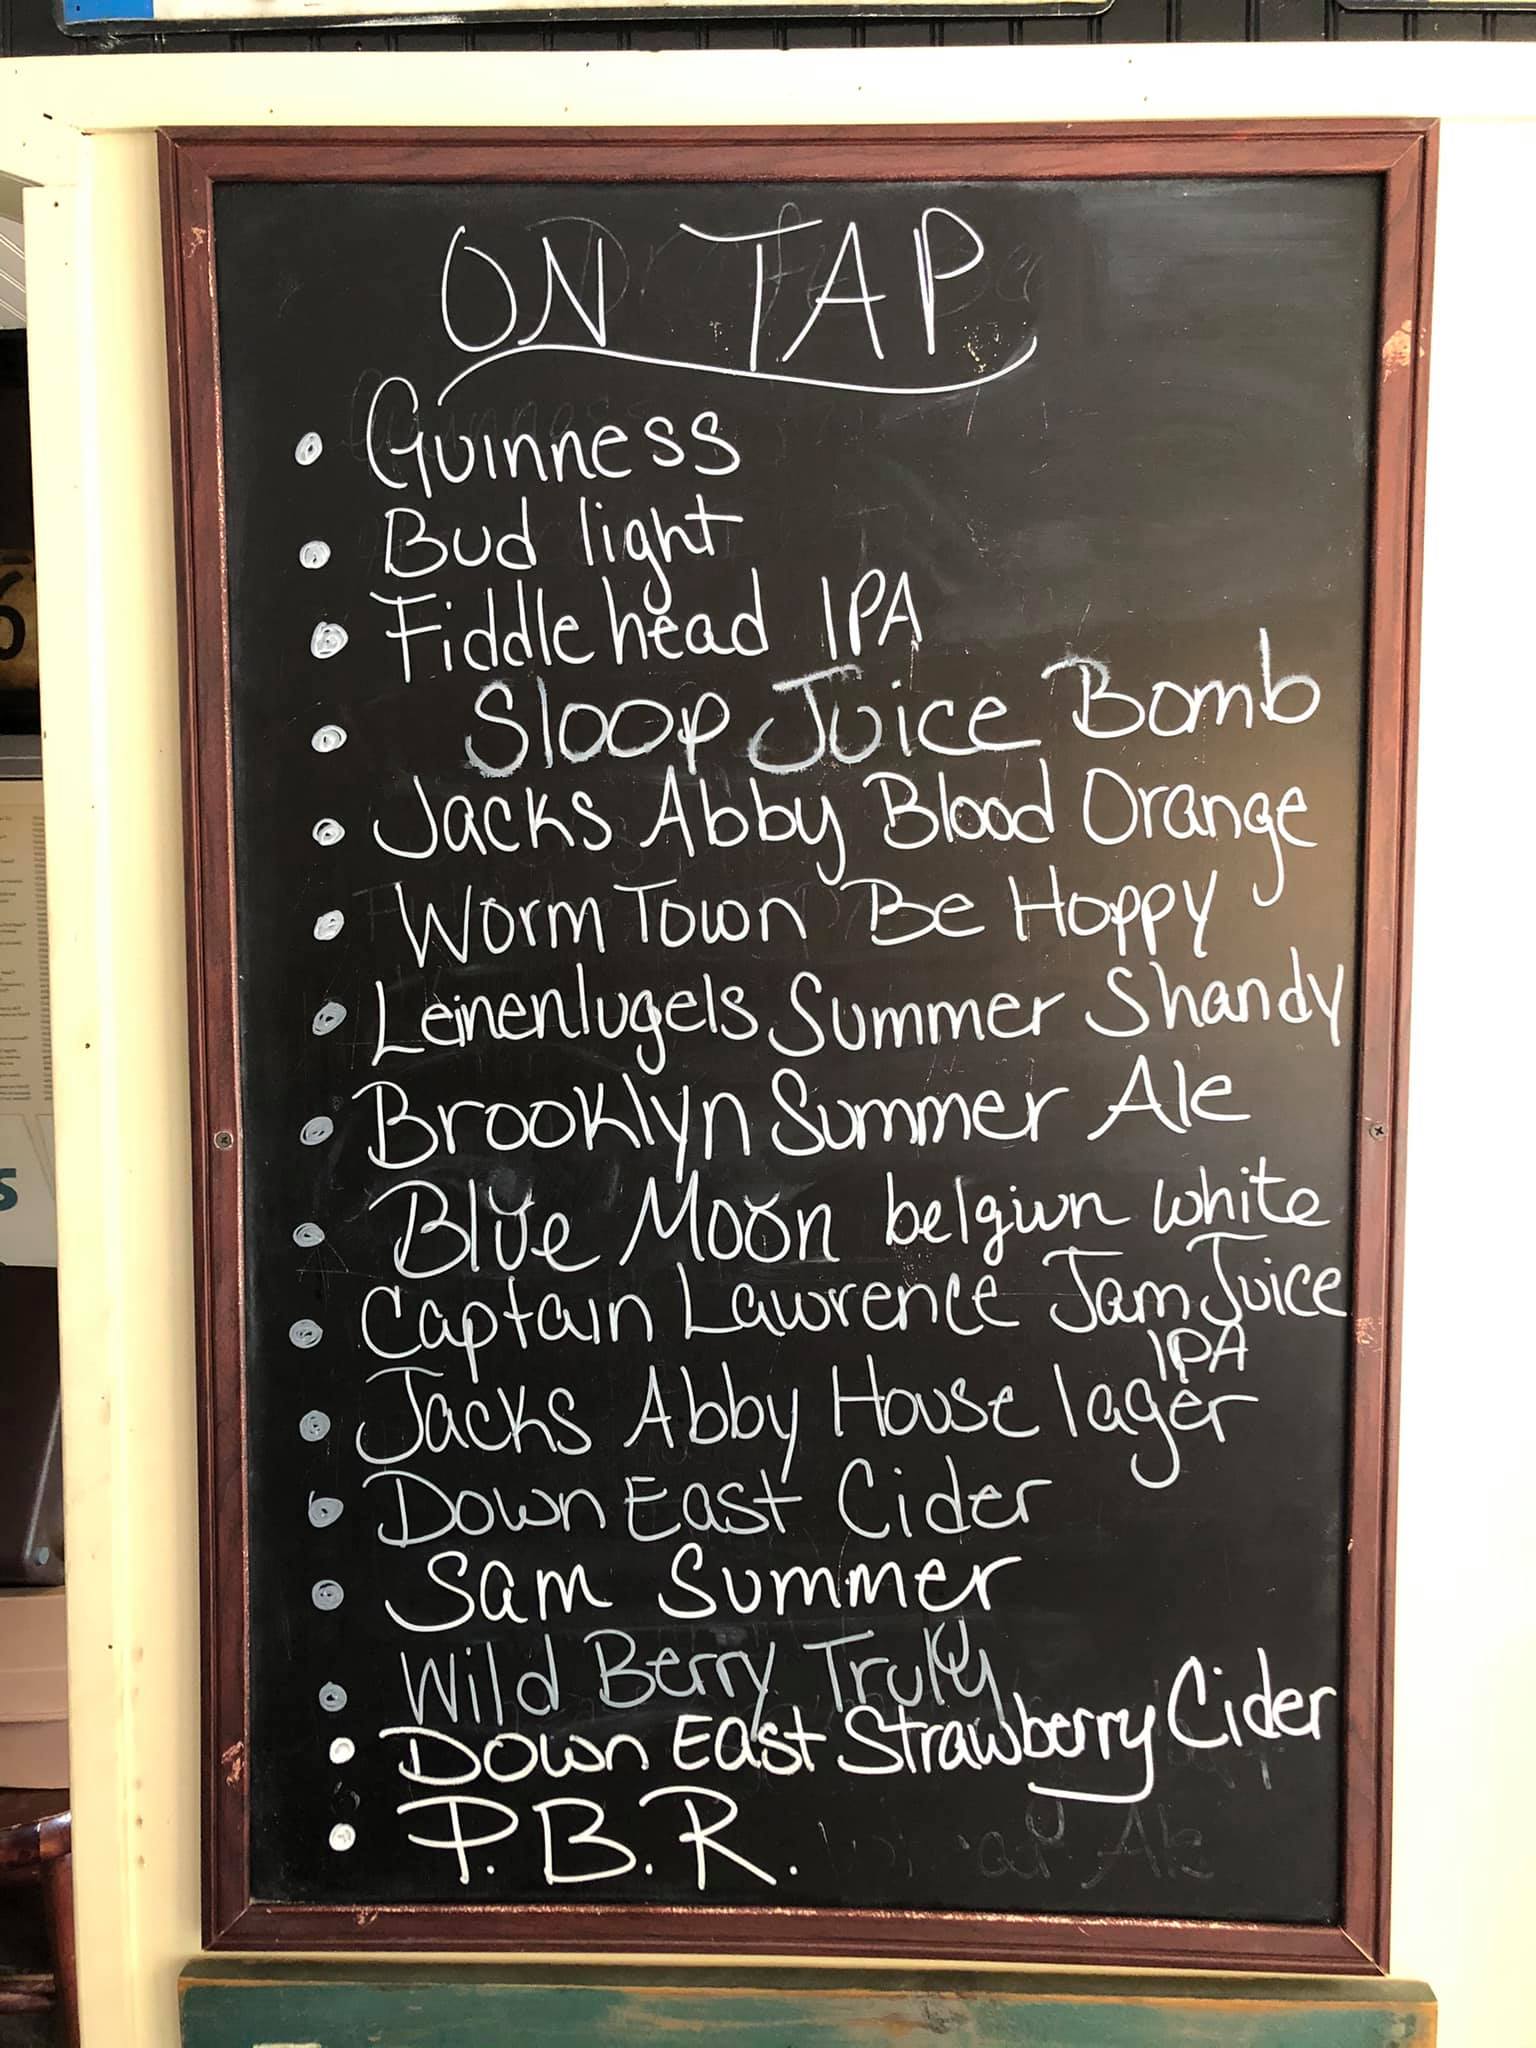 ON TAP
• Guinness
• Bud light
• Fiddlehead IPA
• Sloop Juice Bomb
• Jacks Abby Blood Orange
• Worm Town Be Hoppy
• Leinenlugels Summer Shandy
• Brooklyn Summer Ale
• Blue Moon belgiun white
• Captain Lawrence Jam Juice
IPA
• Jacks Abby House lager
• Down East Cider
• Sam Summer
• Wild Berry Truly
• Down East Strawberry Cider
• P.B.R.